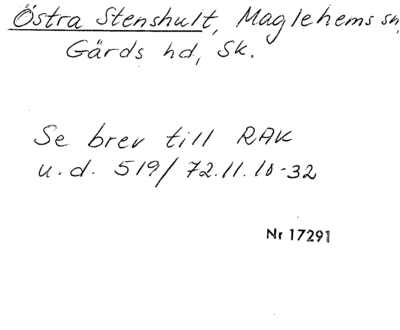 Östra Stenshult, Maglehems sn,
Gärds hd, Sk.
Se brev till RAK
u.d. 519/72.11.10-32
Nr 17291